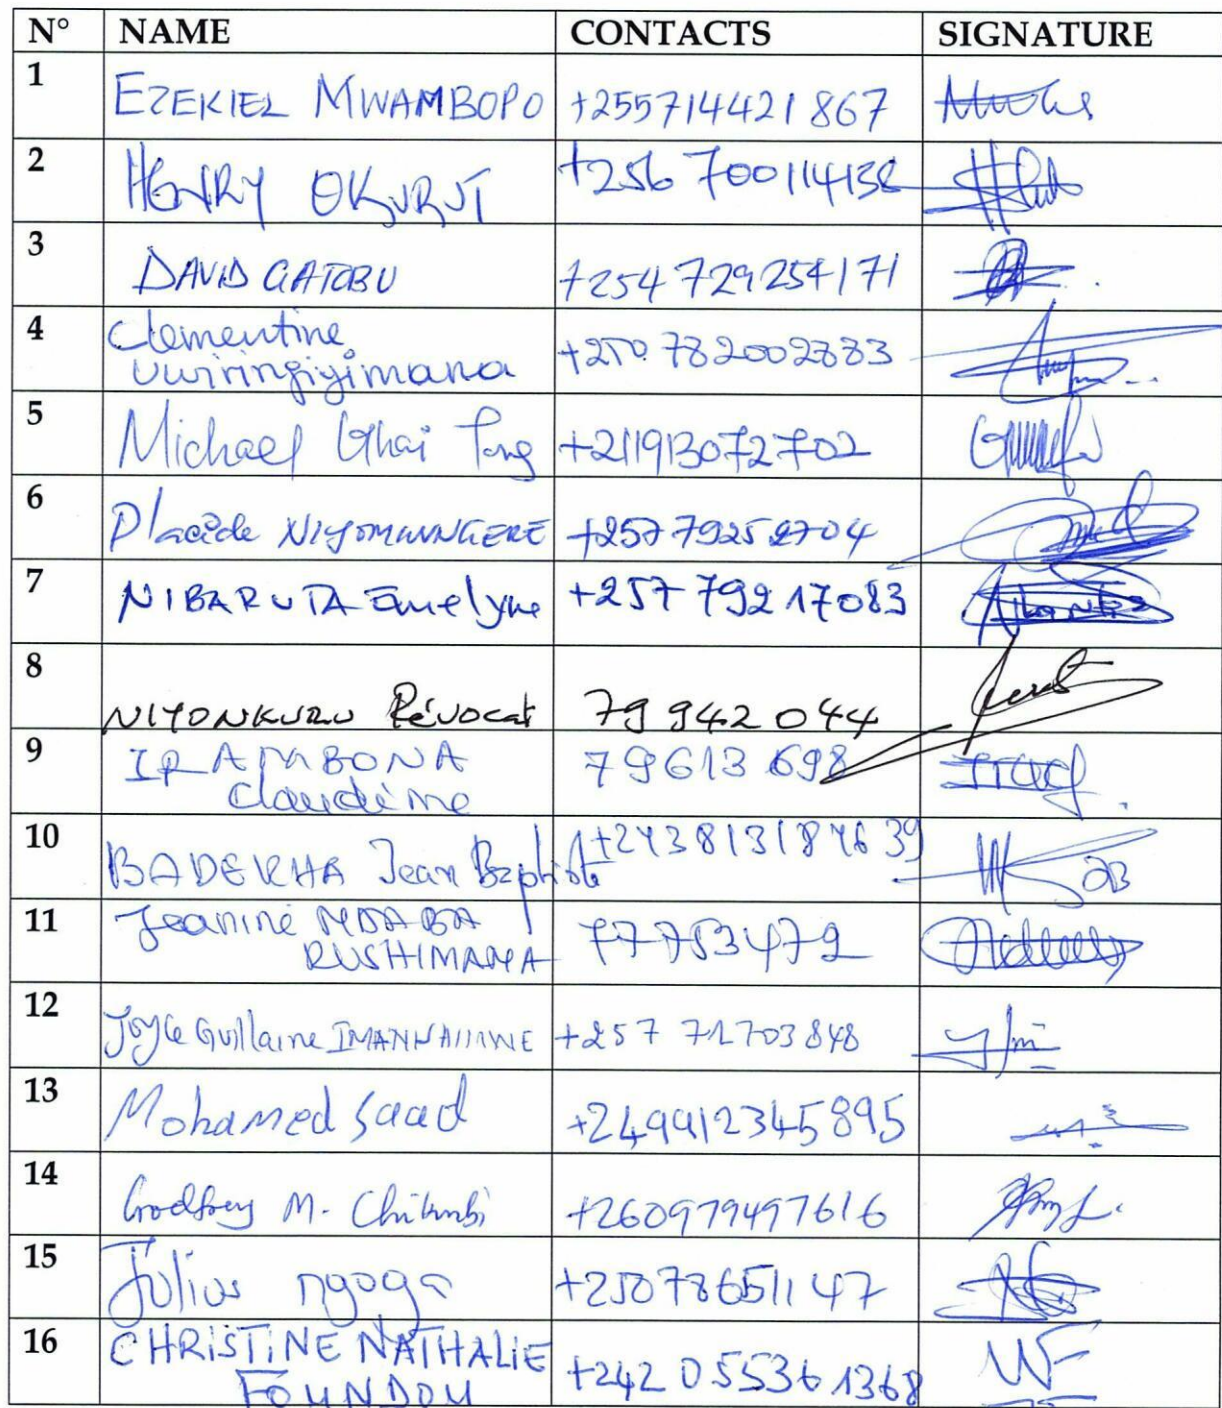 N° NAME CONTACTS SIGNATURE
1 EZEKIEL MWAMBOPO +255714421867
2 HENRY OKURUT +256 700114138
3 DAVID GATOBU +254 729254171
4 Clementine
Uwiringiyimana +250 782002883
5 Michael Ghai +211913072702
6 Placide +257 79252704
7 NIBARUTA Emelyne +257 79217083
8 NIYONKURU Révocat 79 942 044
9 IRAMBONA 79613698
Claudine
10 BADERHA Jean Baptiste +243813187639
11 Jeanine
RUSHIMANA 77753479
12 Joyce Guillaine +257 71703848
13 Mohamed Saad +249912345895
14 Godfrey M. +260979497616
15 Julius ngoga +250786511 47
16 CHRISTINE NATHALIE
FOUNDOU +242 05536 1368